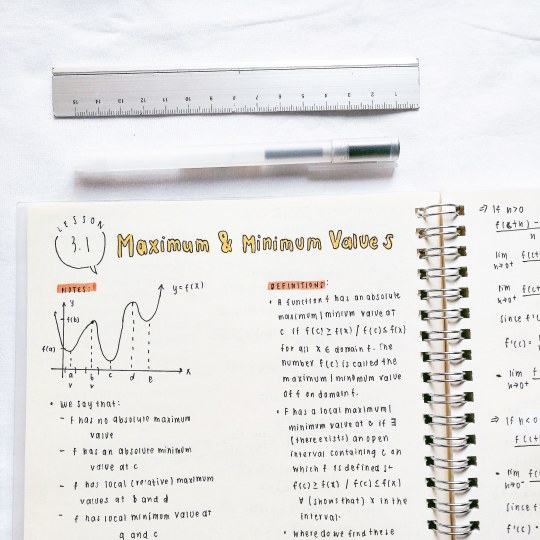 LESSON
3.1
Maximum & Minimum Values
NOTES:
y
y=f(x)
f(b)
f(a)
a b c d e x
• We say that:
- f has no absolute maximum
value
- f has an absolute minimum
value at c
- f has local (relative) maximum
values at b and d
- f has local minimum value at
a and c
DEFINITIONS:
• A function f has an absolute
maximum/minimum value at
c if f(c) ≥ f(x) / f(c) ≤ f(x)
for all x ∈ domain f. The
number f(c) is called the
maximum/minimum value
of f on domain f.
• f has a local maximum/
minimum value at c if ∃
(there exists) an open
interval containing c on
which f is defined st
f(c) ≥ f(x) / f(c) ≤ f(x)
∀ (shows that) x in the
interval.
• Where do we find these
⇒ If h>0
f(c+h) -
h
lim
h→0⁺
lim
h→0⁺
since f'
f'(c) =
• lim
h→0⁺
⇒ If h<0
f(c+
• lim
h→0⁻
since f
f'(c)
15 14 13 12 11 10 9 8 7 6 5 4 3 2 1